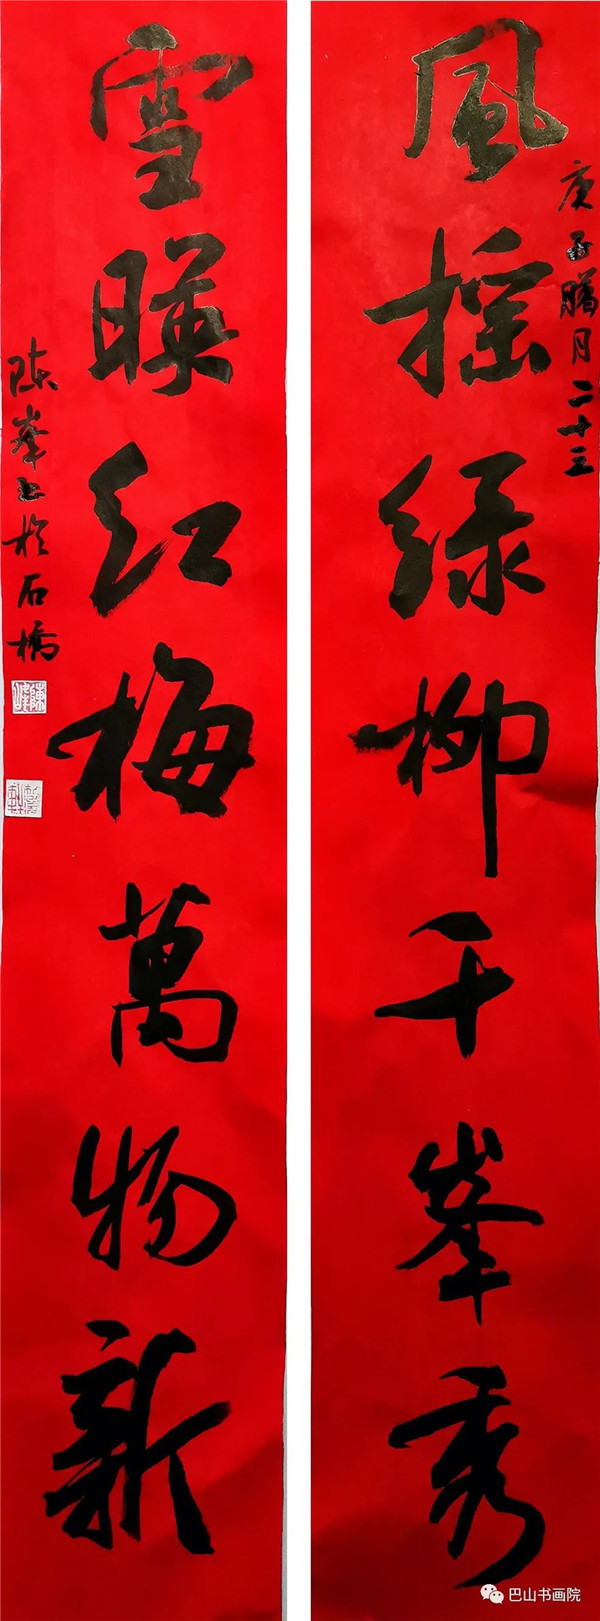 風摇绿柳千峯秀
庚子腊月二十三
雪暎红梅萬物新
陈峯书於石橋
陳峰
巴山书画院